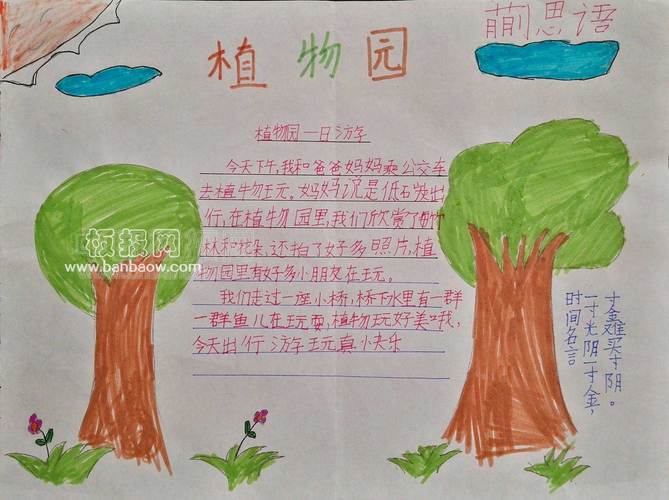 植物园
蒯思语
植物园一日游
今天下午,我和爸爸妈妈乘公交车
去植物玩。妈妈说是低碳出
行,在植物园里,我们欣赏了
林和花朵,还拍了好多照片,植
物园里有好多小朋友在玩。
我们走过一座小桥,桥下水里有一群
一群鱼儿在玩耍,植物玩好美哦,
今天出行游玩真快乐
时间名言
一寸光阴一寸金,
寸金难买寸阴。
板报网
www.banbaow.com